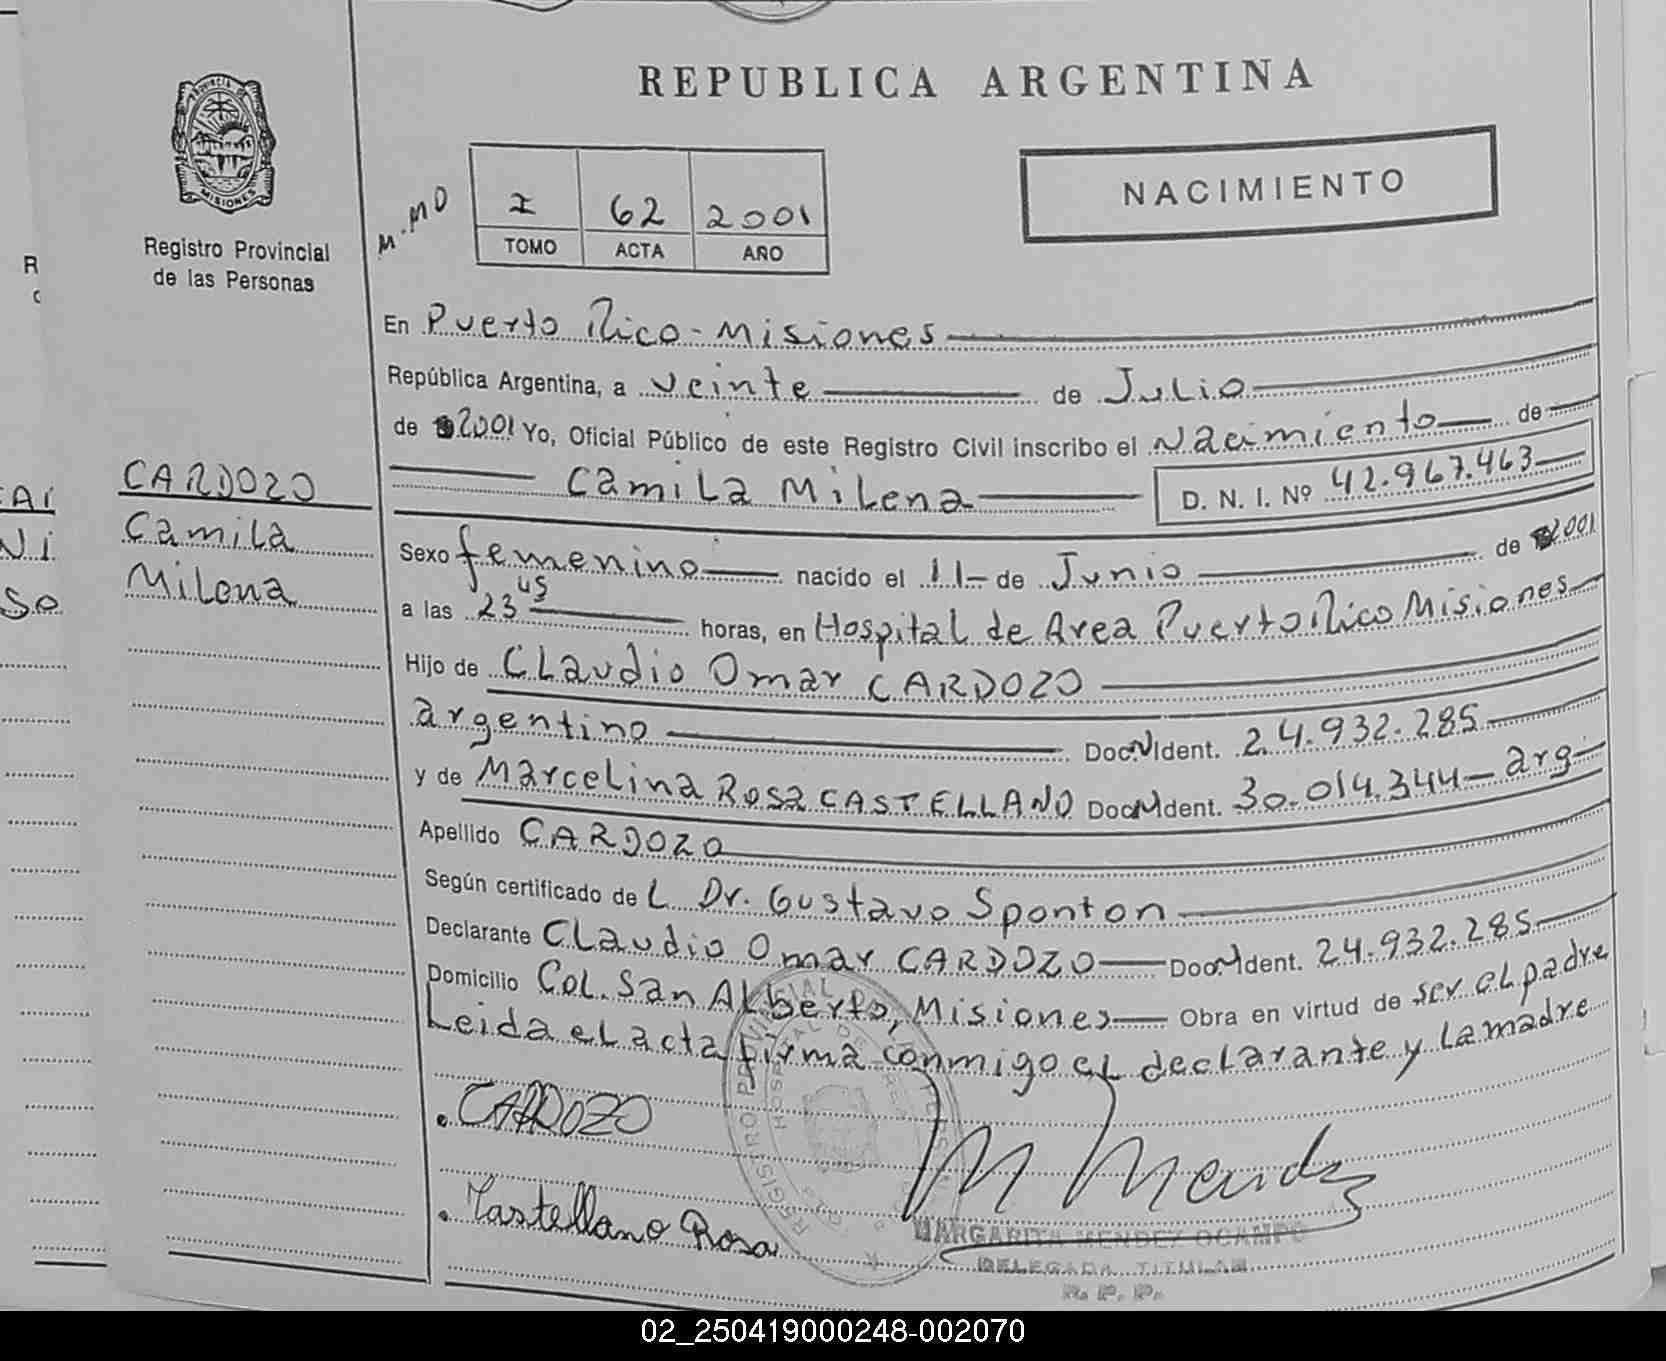 REPUBLICA ARGENTINA
PROVINCIA DE
MISIONES
Registro Provincial
de las Personas
M.MO
I 62 2001
TOMO ACTA AÑO
NACIMIENTO
CARDOZO
Camila
Milena
En Puerto Rico - Misiones
República Argentina, a veinte de Julio
de 2001 Yo, Oficial Público de este Registro Civil inscribo el Nacimiento de
Camila Milena D. N. I. Nº 42.967.463
Sexo femenino nacido el 11 de Junio de 2001
a las 23 45 horas, en Hospital de Area Puerto Rico Misiones
Hijo de Claudio Omar CARDOZO
argentino Doc.N.Ident. 24.932.285
y de Marcelina Rosa CASTELLANO Doc.N.Ident. 30.014.344 - arg
Apellido CARDOZO
Según certificado de L Dr. Gustavo Sponton
Declarante Claudio Omar CARDOZO Doc.N.Ident. 24.932.285
Domicilio Col. San Alberto, Misiones Obra en virtud de ser el padre
Leida el acta firma conmigo el declarante y la madre
CARDOZO
M Mendez
Castellano Rosa
REGISTRO PROVINCIAL DE
MARGARITA MENDEZ OCAMPO
DELEGADA TITULAR
R. P. P.
02_250419000248-002070